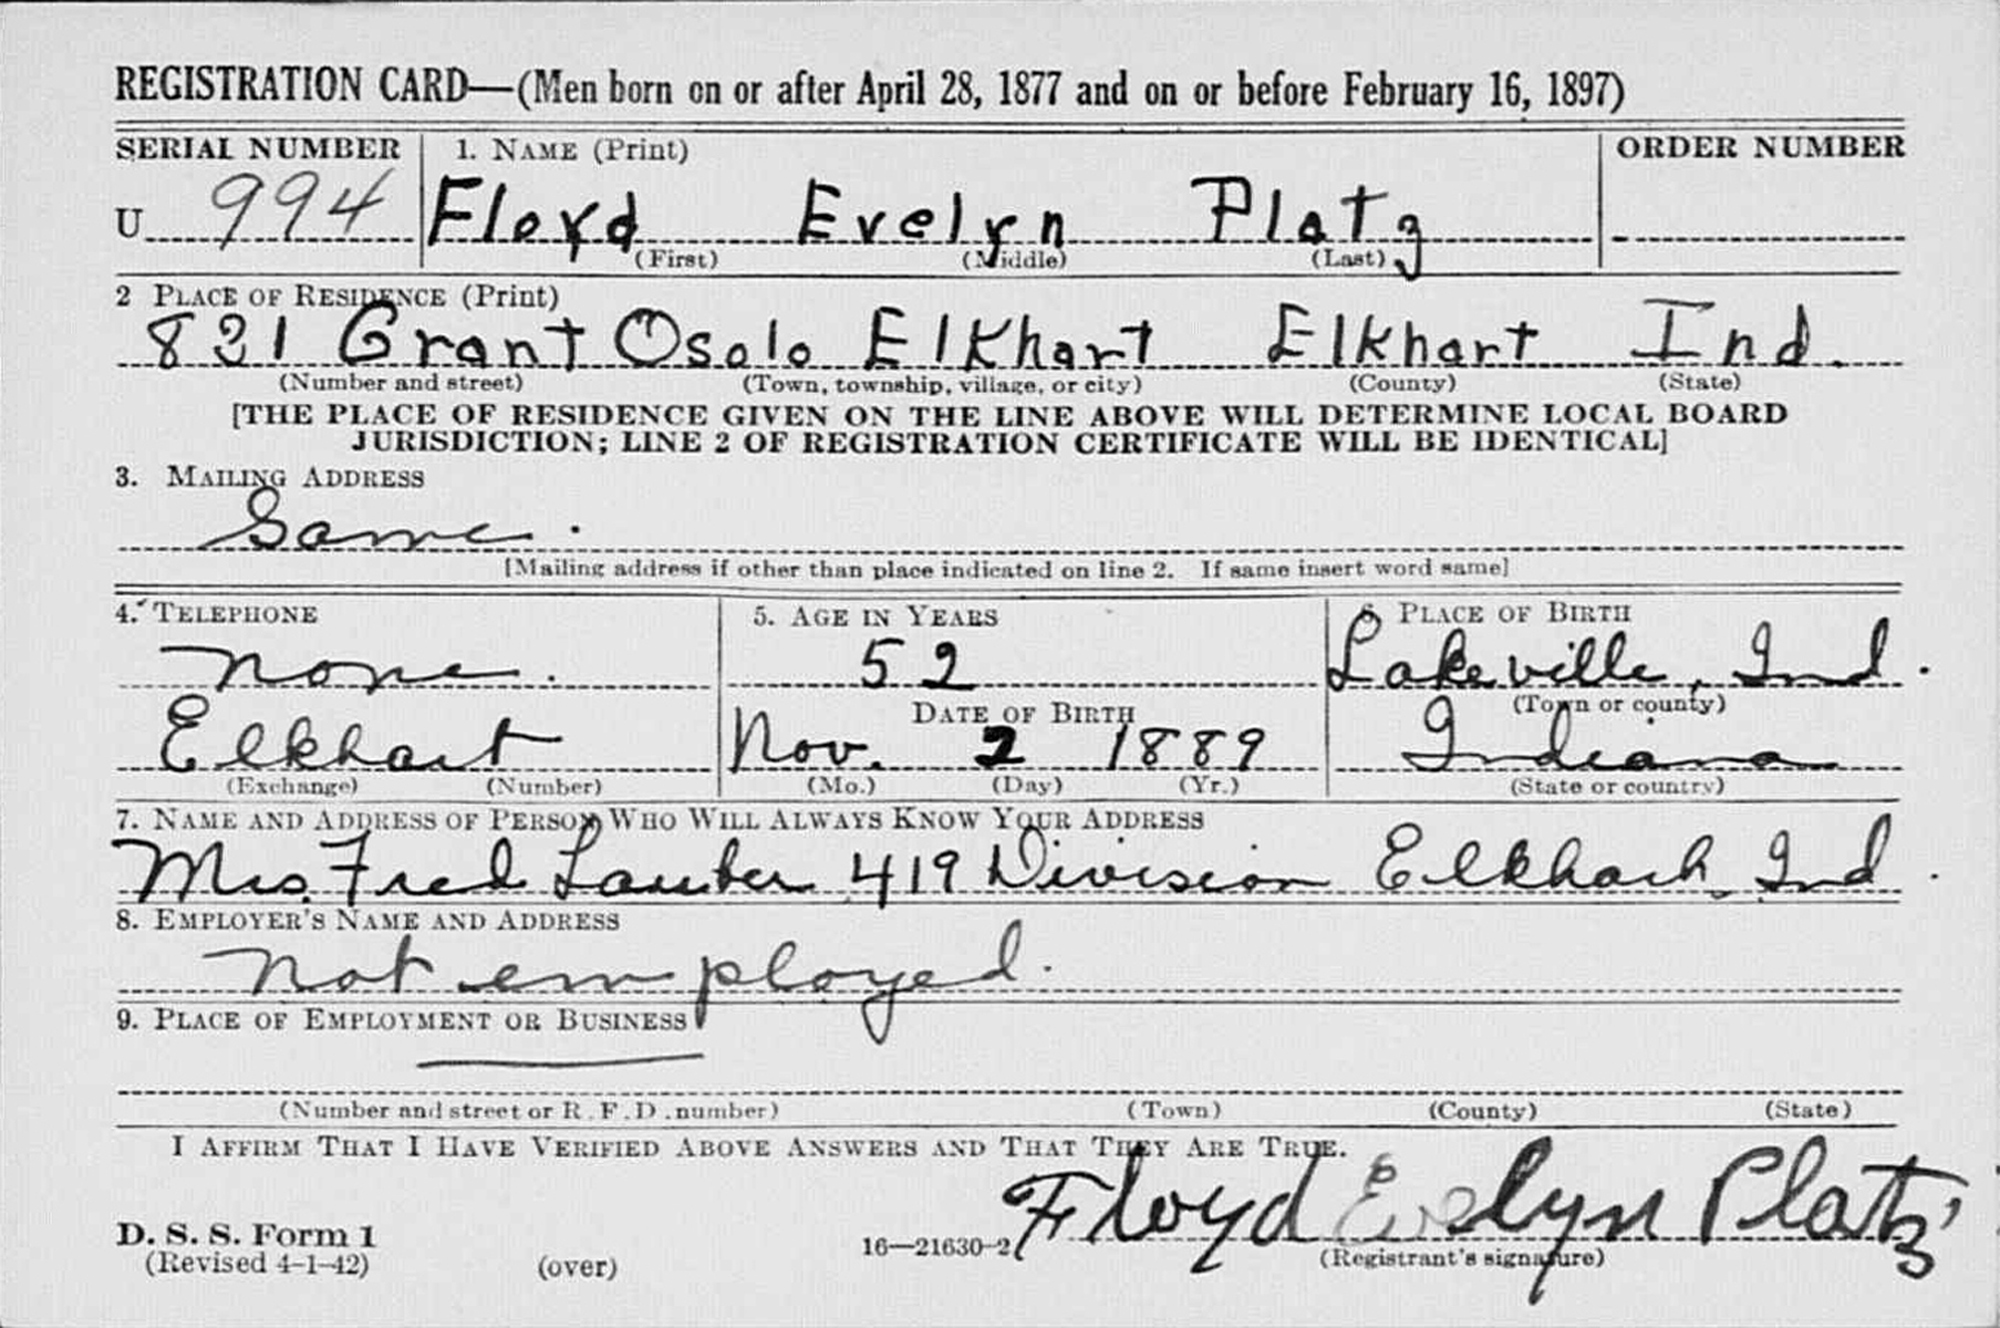 REGISTRATION CARD—(Men born on or after April 28, 1877 and on or before February 16, 1897)
SERIAL NUMBER 1. NAME (Print) ORDER NUMBER
U 994 Floyd Evelyn Platz
(First) (Middle) (Last)
2 PLACE OF RESIDENCE (Print)
821 Grant Osolo Elkhart Elkhart Ind.
(Number and street) (Town, township, village, or city) (County) (State)
[THE PLACE OF RESIDENCE GIVEN ON THE LINE ABOVE WILL DETERMINE LOCAL BOARD
JURISDICTION; LINE 2 OF REGISTRATION CERTIFICATE WILL BE IDENTICAL]
3. MAILING ADDRESS
Same.
[Mailing address if other than place indicated on line 2. If same insert word same]
4. TELEPHONE 5. AGE IN YEARS 6. PLACE OF BIRTH
none. 52 Lakeville, Ind.
DATE OF BIRTH (Town or county)
Elkhart Nov. 2 1889 Indiana
(Exchange) (Number) (Mo.) (Day) (Yr.) (State or country)
7. NAME AND ADDRESS OF PERSON WHO WILL ALWAYS KNOW YOUR ADDRESS
Mrs. Fred Lauber 419 Division Elkhart, Ind.
8. EMPLOYER'S NAME AND ADDRESS
not employed.
9. PLACE OF EMPLOYMENT OR BUSINESS
(Number and street or R. F. D. number) (Town) (County) (State)
I AFFIRM THAT I HAVE VERIFIED ABOVE ANSWERS AND THAT THEY ARE TRUE.
Floyd Evelyn Platz
D. S. S. Form 1
(Revised 4-1-42) (over) 16—21630-2 (Registrant's signature)